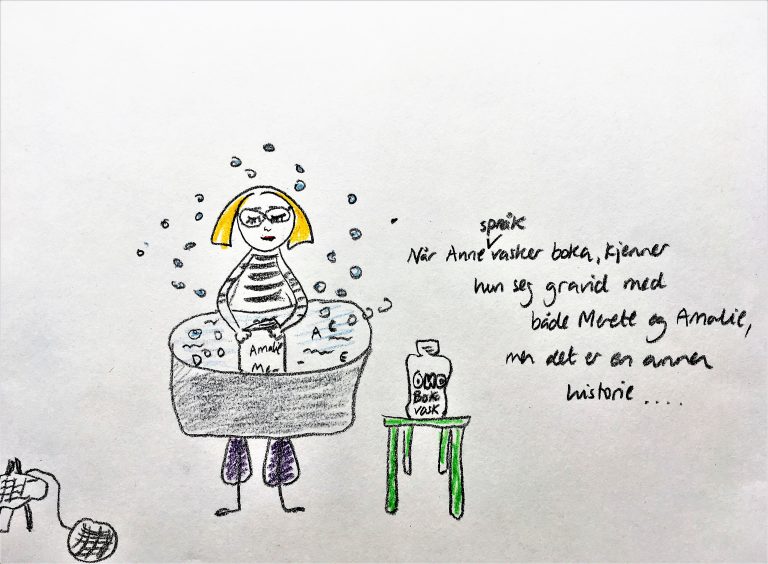 språk
Når Anne vasker boka, kjenner
hun seg gravid med
både Merete og Amalie,
men det er en annen
historie ....
A E
D
E
Amalie
Me-
ØKO
Bok
vask